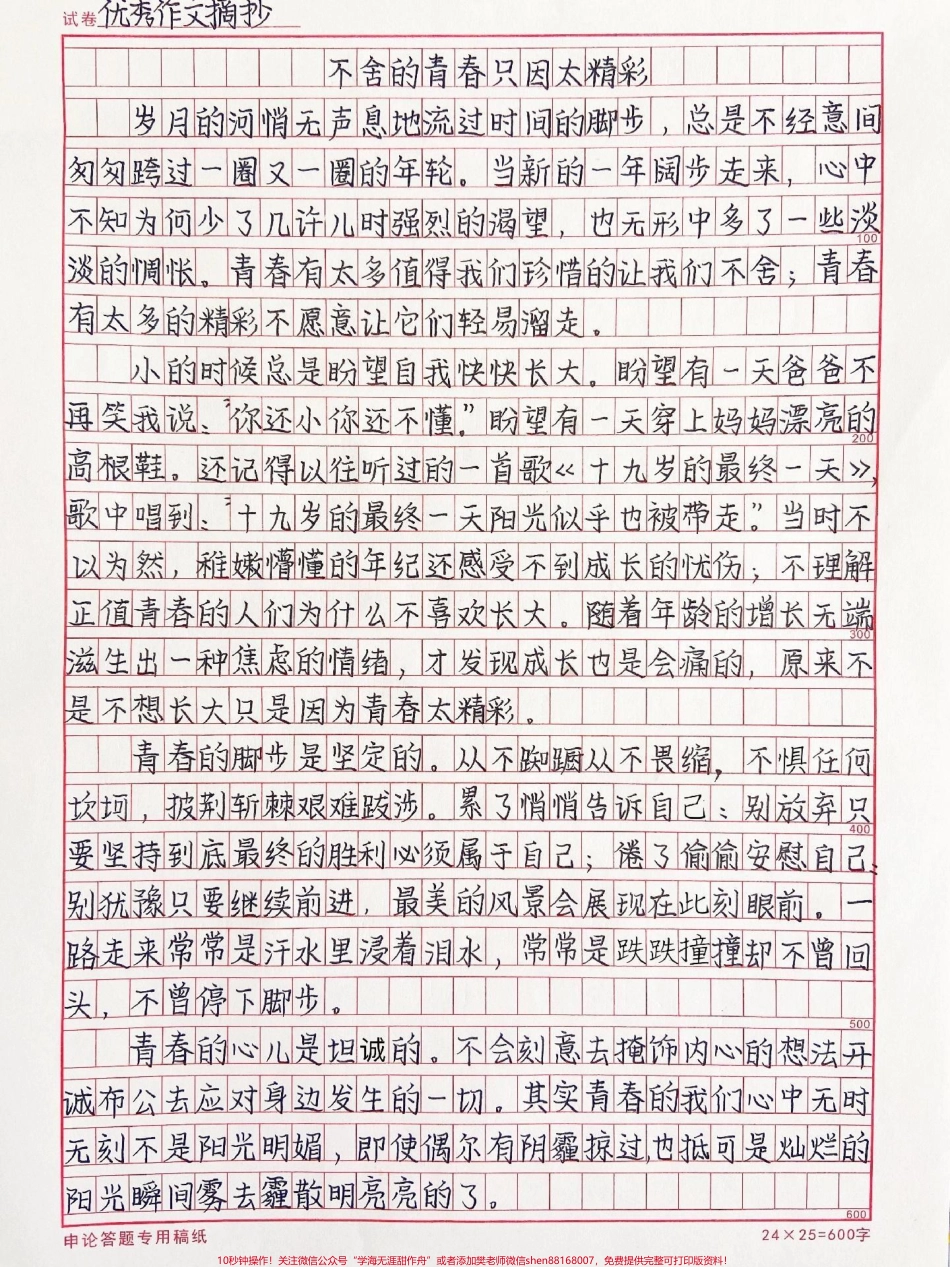 试卷 优秀作文摘抄
不舍的青春只因太精彩
岁月的河悄无声息地流过时间的脚步，总是不经意间
匆匆跨过一圈又一圈的年轮。当新的一年阔步走来，心中
不知为何少了几许儿时强烈的渴望，也无形中多了一些淡
100
淡的惆怅。青春有太多值得我们珍惜的让我们不舍；青春
有太多的精彩不愿意让它们轻易溜走。
小的时候总是盼望自我快快长大。盼望有一天爸爸不
再笑我说：“你还小你还不懂。”盼望有一天穿上妈妈漂亮的
200
高根鞋。还记得以往听过的一首歌《十九岁的最终一天》，
歌中唱到：“十九岁的最终一天阳光似乎也被带走。”当时不
以为然，稚嫩懵懂的年纪还感受不到成长的忧伤；不理解
正值青春的人们为什么不喜欢长大。随着年龄的增长无端
300
滋生出一种焦虑的情绪，才发现成长也是会痛的，原来不
是不想长大只是因为青春太精彩。
青春的脚步是坚定的。从不踟蹰从不畏缩，不惧任何
坎坷，披荆斩棘艰难跋涉。累了悄悄告诉自己：别放弃只
400
要坚持到底最终的胜利必须属于自己；倦了偷偷安慰自己：
别犹豫只要继续前进，最美的风景会展现在此刻眼前。一
路走来常常是汗水里浸着泪水，常常是跌跌撞撞却不曾回
头，不曾停下脚步。
500
青春的心儿是坦诚的。不会刻意去掩饰内心的想法开
诚布公去应对身边发生的一切。其实青春的我们心中无时
无刻不是阳光明媚，即使偶尔有阴霾掠过，也抵可是灿烂的
阳光瞬间雾去霾散明亮亮的了。
600
申论答题专用稿纸 24×25=600字
10秒钟操作！关注微信公众号“学海无涯甜作舟”或者添加樊老师微信shen88168007，免费提供完整可打印版资料！